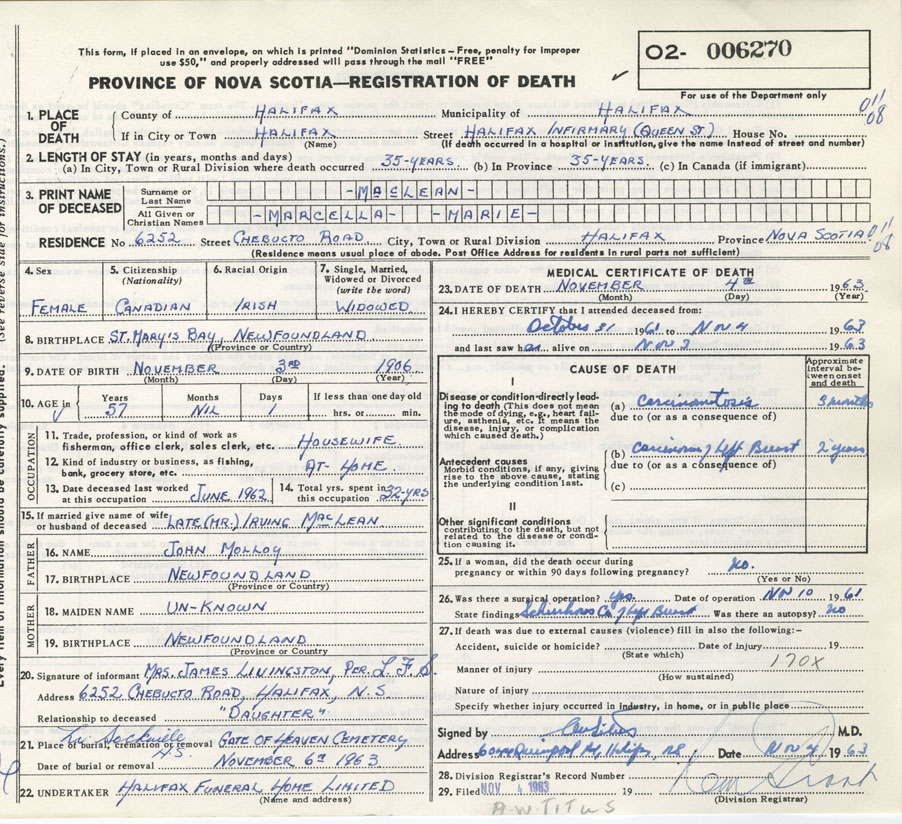 This form, if placed in an envelope, on which is printed "Dominion Statistics – Free, penalty for improper
use $50," and properly addressed will pass through the mail "FREE"
PROVINCE OF NOVA SCOTIA—REGISTRATION OF DEATH
O2- 006270
For use of the Department only
1. PLACE OF DEATH
County of HALIFAX Municipality of HALIFAX
011 08
If in City or Town HALIFAX Street HALIFAX INFIRMARY (QUEEN ST.) House No.
(Name) (If death occurred in a hospital or institution, give the name instead of street and number)
2. LENGTH OF STAY (in years, months and days)
(a) In City, Town or Rural Division where death occurred 35-YEARS. (b) In Province 35-YEARS. (c) In Canada (if immigrant)
3. PRINT NAME OF DECEASED
Surname or Last Name -MACLEAN-
All Given or Christian Names -MARCELLA- -MARIE-
RESIDENCE No. 6252 Street CHEBUCTO ROAD City, Town or Rural Division HALIFAX Province NOVA SCOTIA
011 08
(Residence means usual place of abode. Post Office Address for residents in rural parts not sufficient)
4. Sex FEMALE
5. Citizenship (Nationality) CANADIAN
6. Racial Origin IRISH
7. Single, Married, Widowed or Divorced (write the word) WIDOWED
8. BIRTHPLACE ST. MARY'S BAY, NEWFOUNDLAND
(Province or Country)
9. DATE OF BIRTH NOVEMBER 3RD 1906
(Month) (Day) (Year)
10. AGE in Years 57 Months NIL Days 1 If less than one day old hrs. or min.
OCCUPATION
11. Trade, profession, or kind of work as
fisherman, office clerk, sales clerk, etc. HOUSEWIFE
12. Kind of industry or business, as fishing,
bank, grocery store, etc. AT-HOME.
13. Date deceased last worked at this occupation JUNE 1962
14. Total yrs. spent in this occupation 32-YRS
15. If married give name of wife
or husband of deceased LATE (MR.) IRVING MACLEAN
FATHER
16. NAME JOHN MOLLOY
17. BIRTHPLACE NEWFOUNDLAND
(Province or Country)
MOTHER
18. MAIDEN NAME UN-KNOWN
19. BIRTHPLACE NEWFOUNDLAND
(Province or Country)
20. Signature of informant MRS. JAMES LIVINGSTON, PER. L F S
Address 6252 CHEBUCTO ROAD, HALIFAX, N.S
Relationship to deceased "DAUGHTER"
Sackville
N.S.
21. Place of burial, cremation or removal GATE OF HEAVEN CEMETERY
Date of burial or removal NOVEMBER 6th 1963
22. UNDERTAKER HALIFAX FUNERAL HOME LIMITED
(Name and address)
MEDICAL CERTIFICATE OF DEATH
23. DATE OF DEATH NOVEMBER 4th 1963
(Month) (Day) (Year)
24. I HEREBY CERTIFY that I attended deceased from:
October 31 1961 to NOV 4 1963
and last saw her alive on NOV 3 1963
CAUSE OF DEATH
Approximate interval between onset and death
I
Disease or condition-directly leading to death (This does not mean the mode of dying, e.g., heart failure, asthenia, etc. It means the disease, injury, or complication which caused death.)
(a) Carcinomatosis 3 months
due to (or as a consequence of)
Antecedent causes
Morbid conditions, if any, giving rise to the above cause, stating the underlying condition last.
(b) Carcinoma of Left Breast 2 years
due to (or as a consequence of)
(c)
II
Other significant conditions
contributing to the death, but not related to the disease or condition causing it.
25. If a woman, did the death occur during
pregnancy or within 90 days following pregnancy? No.
(Yes or No)
26. Was there a surgical operation? yes. Date of operation NOV 10 1961
State findings Scirrhous Ca of Left Breast Was there an autopsy? no
27. If death was due to external causes (violence) fill in also the following:–
Accident, suicide or homicide? Date of injury 19
(State which)
170X
Manner of injury
(How sustained)
Nature of injury
Specify whether injury occurred in industry, in home, or in public place
Signed by M.D.
Address Quinpool Rd, Halifax, NS Date Nov 4 1963
28. Division Registrar's Record Number
29. Filed NOV 4 1963 19
(Division Registrar)
A.W. TITUS
(See reverse side for instructions.)
Every item of information should be carefully supplied.